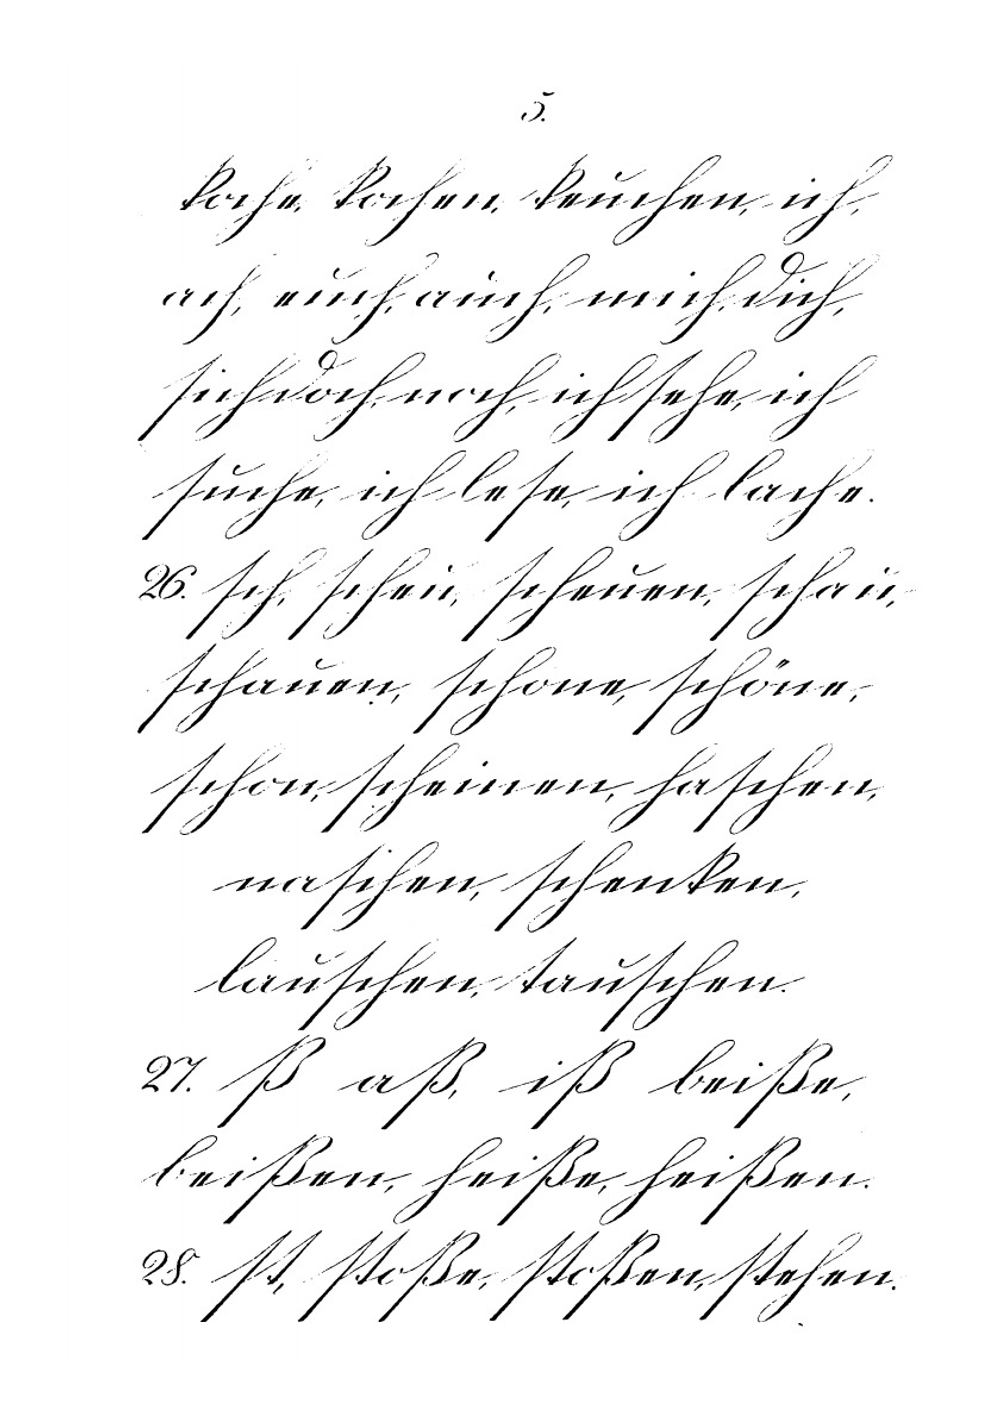 5.
koche, kochen, keuchen, ich,
ach, euch, auch, mich, dich,
sich, doch, noch, ich sehe, ich
suche, ich lese, ich lache.
26. sch, scheu, scheuen, schau,
schauen, schone, schöne,
schon, scheinen, haschen,
naschen, schenken,
lauschen, tauschen.
27. ß aß, iß beiße,
beißen, heiße, heißen.
28. st, stoße, stoßen, stehen.